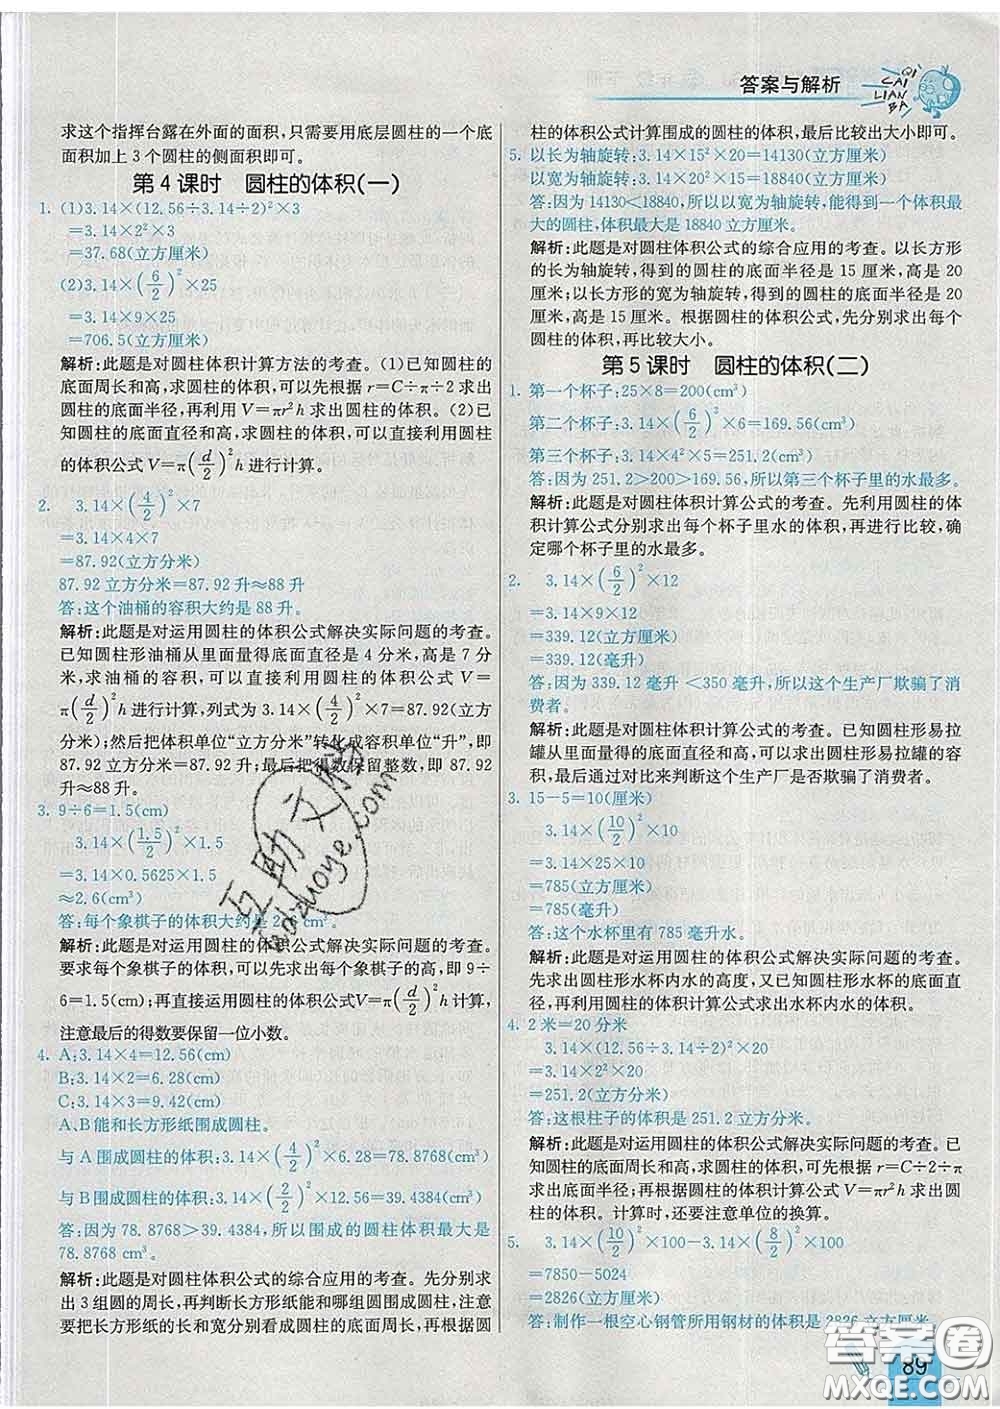 答案与解析
QI
CAI
LIAN
BA
求这个指挥台露在外面的面积,只需要用底层圆柱的一个底
面积加上3个圆柱的侧面积即可。
第4课时 圆柱的体积(一)
1. (1)3.14×(12.56÷3.14÷2)²×3
=3.14×2²×3
=37.68(立方厘米)
(2)3.14×(6/2)²×25
=3.14×9×25
=706.5(立方厘米)
解析:此题是对圆柱体积计算方法的考查。(1)已知圆柱的
底面周长和高,求圆柱的体积,可以先根据r=C÷π÷2求出
圆柱的底面半径,再利用V=πr²h求出圆柱的体积。(2)已
知圆柱的底面直径和高,求圆柱的体积,可以直接利用圆柱
的体积公式V=π(d/2)²h进行计算。
2. 3.14×(4/2)²×7
=3.14×4×7
=87.92(立方分米)
87.92立方分米=87.92升≈88升
答:这个油桶的容积大约是88升。
解析:此题是对运用圆柱的体积公式解决实际问题的考查。
已知圆柱形油桶从里面量得底面直径是4分米,高是7分
米,求油桶的容积,可以直接利用圆柱的体积公式V=
π(d/2)²h进行计算,列式为3.14×(4/2)²×7=87.92(立方
分米);然后把体积单位“立方分米”转化成容积单位“升”,即
87.92立方分米=87.92升;最后把得数保留整数,即87.92
升≈88升。
3. 9÷6=1.5(cm)
3.14×(1.5/2)²×1.5
=3.14×0.5625×1.5
≈2.6(cm³)
答:每个象棋子的体积大约是2.6cm³。
解析:此题是对运用圆柱的体积公式解决实际问题的考查。
要求每个象棋子的体积,可以先求出每个象棋子的高,即9÷
6=1.5(cm);再直接运用圆柱的体积公式V=π(d/2)²h计算,
注意最后的得数要保留一位小数。
4. A:3.14×4=12.56(cm)
B:3.14×2=6.28(cm)
C:3.14×3=9.42(cm)
A、B能和长方形纸围成圆柱。
与A围成圆柱的体积:3.14×(4/2)²×6.28=78.8768(cm³)
与B围成圆柱的体积:3.14×(2/2)²×12.56=39.4384(cm³)
答:因为78.8768>39.4384,所以围成的圆柱体积最大是
78.8768 cm³。
解析:此题是对圆柱体积公式的综合应用的考查。先分别求
出3组圆的周长,再判断长方形纸能和哪组圆围成圆柱,注意
要把长方形纸的长和宽分别看成圆柱的底面周长,再根据圆
柱的体积公式计算围成的圆柱的体积,最后比较出大小即可。
5. 以长为轴旋转:3.14×15²×20=14130(立方厘米)
以宽为轴旋转:3.14×20²×15=18840(立方厘米)
答:因为14130<18840,所以以宽为轴旋转,能得到一个体积最
大的圆柱,体积最大是18840立方厘米。
解析:此题是对圆柱体积公式的综合应用的考查。以长方形
的长为轴旋转,得到的圆柱的底面半径是15厘米,高是20
厘米;以长方形的宽为轴旋转,得到的圆柱的底面半径是20
厘米,高是15厘米。根据圆柱的体积公式,先分别求出每个
圆柱的体积,再比较大小。
第5课时 圆柱的体积(二)
1. 第一个杯子:25×8=200(cm³)
第二个杯子:3.14×(6/2)²×6=169.56(cm³)
第三个杯子:3.14×4²×5=251.2(cm³)
答:因为251.2>200>169.56,所以第三个杯子里的水最多。
解析:此题是对圆柱体积计算公式的考查。先利用圆柱的体
积计算公式分别求出每个杯子里水的体积,再进行比较,确
定哪个杯子里的水最多。
2. 3.14×(6/2)²×12
=3.14×9×12
=339.12(立方厘米)
=339.12(毫升)
答:因为339.12毫升<350毫升,所以这个生产厂欺骗了消
费者。
解析:此题是对圆柱体积计算公式的考查。已知圆柱形易拉
罐从里面量得的底面直径和高,可以求出圆柱形易拉罐的容
积,最后通过对比来判断这个生产厂是否欺骗了消费者。
3. 15-5=10(厘米)
3.14×(10/2)²×10
=3.14×25×10
=785(立方厘米)
=785(毫升)
答:这个水杯里有785毫升水。
解析:此题是对运用圆柱的体积公式解决实际问题的考查。
先求出圆柱形水杯内水的高度,又已知圆柱形水杯的底面直
径,再利用圆柱的体积计算公式求出水杯内水的体积。
4. 2米=20分米
3.14×(12.56÷3.14÷2)²×20
=3.14×2²×20
=251.2(立方分米)
答:这根柱子的体积是251.2立方分米。
解析:此题是对运用圆柱的体积公式解决实际问题的考查。已
知圆柱的底面周长和高,求圆柱的体积,可以先根据r=C÷2÷π
求出底面半径;再根据圆柱的体积计算公式V=πr²h求出圆柱
的体积。计算时,还要注意单位的换算。
5. 3.14×(10/2)²×100-3.14×(8/2)²×100
=7850-5024
=2826(立方厘米)
答:制作一根空心钢管所用钢材的体积是2826立方厘米。
89
互助文学
hdzhuoye.com
答案圈
MXQE.COM